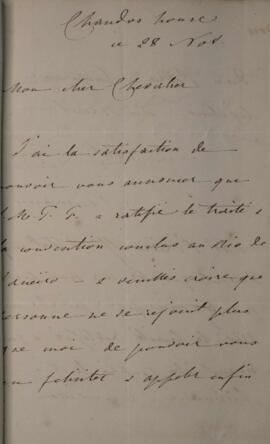 Chandos house
ce 28 Nov.
Mon cher Chevalier
J'ai la satisfaction de
pouvoir vous annoncer que
S M T F a ratifié le traité &
la convention conclus au Rio de
Janeiro - & veuillez croire que
personne ne se rejouit plus
que moi de pouvoir vous
en feliciter & appeler enfin